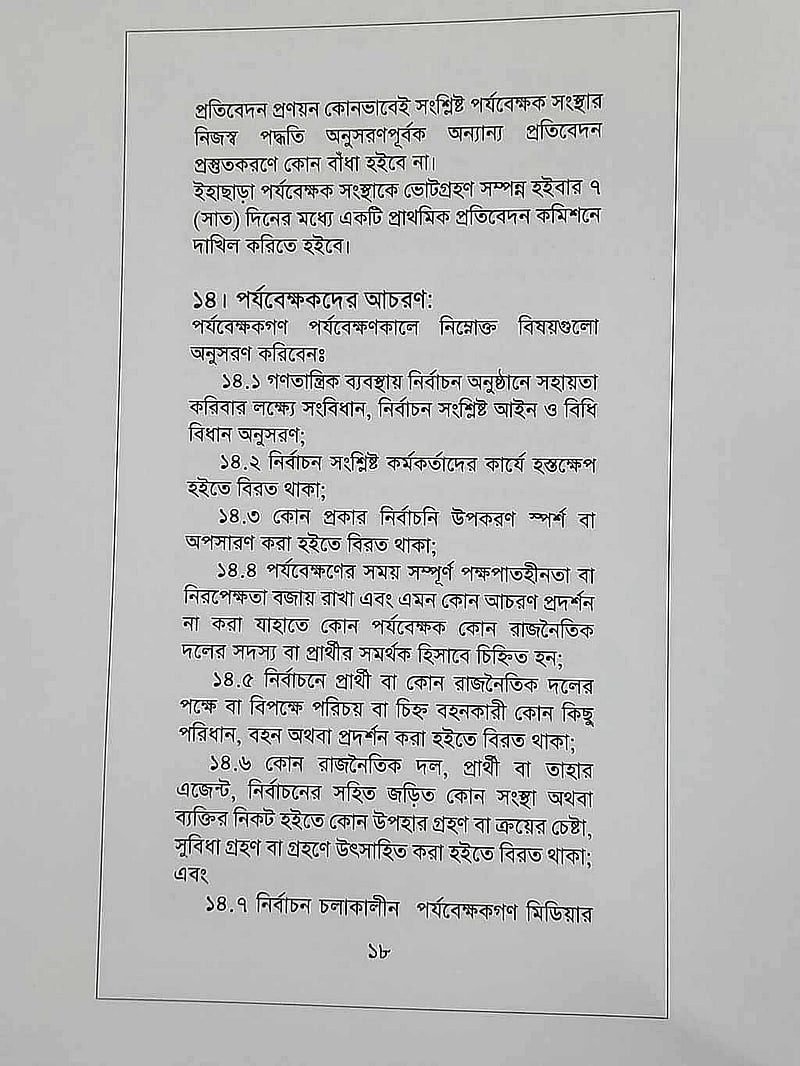 প্রতিবেদন প্রণয়ন কোনভাবেই সংশ্লিষ্ট পর্যবেক্ষক সংস্থার
নিজস্ব পদ্ধতি অনুসরণপূর্বক অন্যান্য প্রতিবেদন
প্রস্তুতকরণে কোন বাঁধা হইবে না।
ইহাছাড়া পর্যবেক্ষক সংস্থাকে ভোটগ্রহণ সম্পন্ন হইবার ৭
(সাত) দিনের মধ্যে একটি প্রাথমিক প্রতিবেদন কমিশনে
দাখিল করিতে হইবে।
১৪। পর্যবেক্ষকদের আচরণ:
পর্যবেক্ষকগণ পর্যবেক্ষণকালে নিম্নোক্ত বিষয়গুলো
অনুসরণ করিবেনঃ
১৪.১ গণতান্ত্রিক ব্যবস্থায় নির্বাচন অনুষ্ঠানে সহায়তা
করিবার লক্ষ্যে সংবিধান, নির্বাচন সংশ্লিষ্ট আইন ও বিধি
বিধান অনুসরণ;
১৪.২ নির্বাচন সংশ্লিষ্ট কর্মকর্তাদের কার্যে হস্তক্ষেপ
হইতে বিরত থাকা;
১৪.৩ কোন প্রকার নির্বাচনি উপকরণ স্পর্শ বা
অপসারণ করা হইতে বিরত থাকা;
১৪.৪ পর্যবেক্ষণের সময় সম্পূর্ণ পক্ষপাতহীনতা বা
নিরপেক্ষতা বজায় রাখা এবং এমন কোন আচরণ প্রদর্শন
না করা যাহাতে কোন পর্যবেক্ষক কোন রাজনৈতিক
দলের সদস্য বা প্রার্থীর সমর্থক হিসাবে চিহ্নিত হন;
১৪.৫ নির্বাচনে প্রার্থী বা কোন রাজনৈতিক দলের
পক্ষে বা বিপক্ষে পরিচয় বা চিহ্ন বহনকারী কোন কিছু
পরিধান, বহন অথবা প্রদর্শন করা হইতে বিরত থাকা;
১৪.৬ কোন রাজনৈতিক দল, প্রার্থী বা তাহার
এজেন্ট, নির্বাচনের সহিত জড়িত কোন সংস্থা অথবা
ব্যক্তির নিকট হইতে কোন উপহার গ্রহণ বা ক্রয়ের চেষ্টা,
সুবিধা গ্রহণ বা গ্রহণে উৎসাহিত করা হইতে বিরত থাকা;
এবং
১৪.৭ নির্বাচন চলাকালীন পর্যবেক্ষকগণ মিডিয়ার
১৮